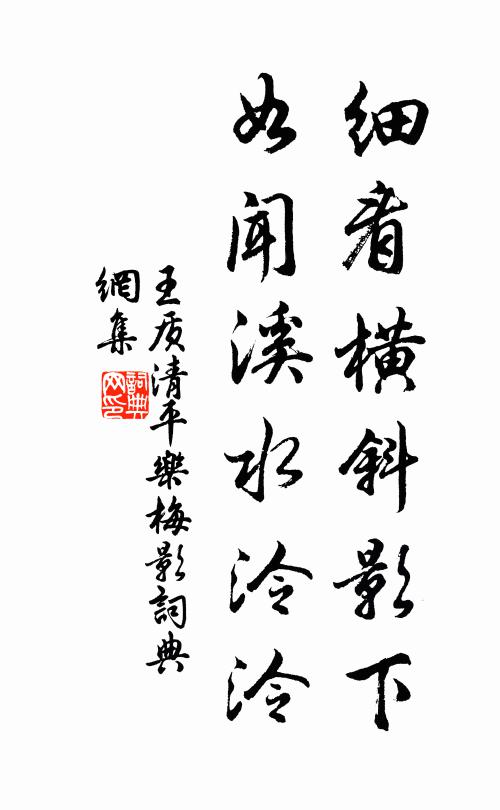 细看横斜影下
如闻溪水泠泠
王质清平樂梅影詞典
網集
詞典
网印